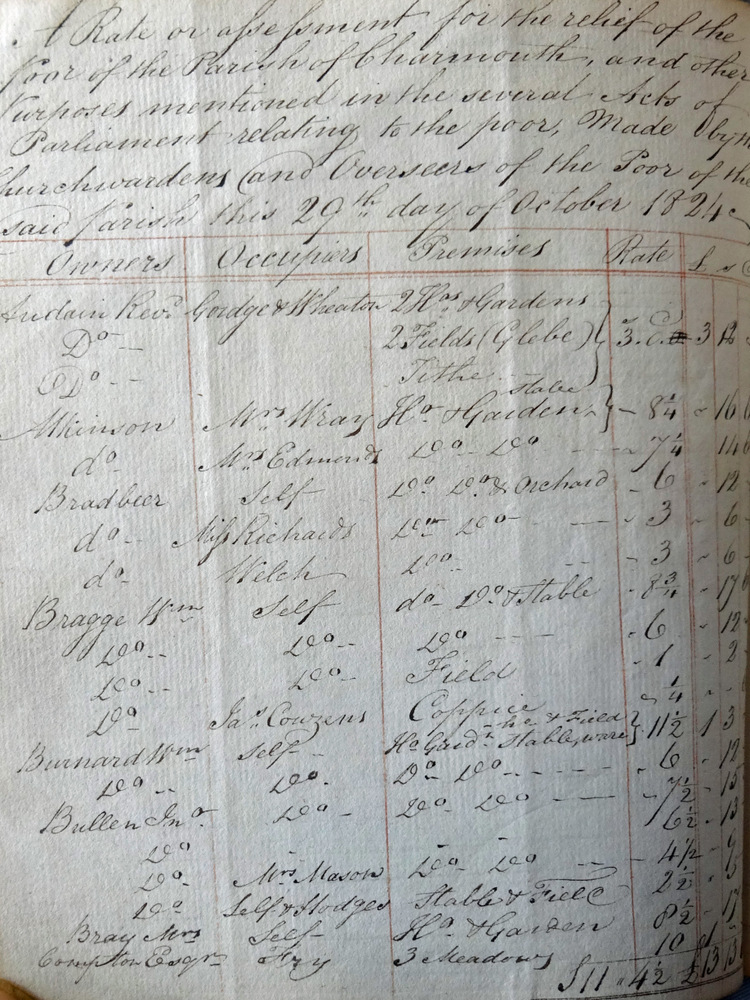 A Rate or assessment for the relief of the
Poor of the Parish of Charmouth, and other
Purposes mentioned in the several Acts of
Parliament relating to the poor, Made by the
Churchwardens and Overseers of the Poor of the
said Parish this 29th day of October 1824
Owners Occupiers Premises Rate £ s
Audain Revd. Goudge & Wheaton 2 Hos & Gardens
Do -- 2 Fields (Glebe) 3. 0. 3 12
Do -- Tithe
Stable
Atkinson Mrs Wray Ho & Garden - 8 1/4 " 16
do Mrs Edmonds Do - Do - 7 1/4 " 14
Bradbeer Self Do Do & Orchard - 6 - 12
do -- Miss Richards Do Do - 3 - 6
do Welch Do - 3 - 6
Bragge Wm Self do Do & Stable - 8 3/4 - 17
Do -- Do -- Do - 6 - 12
Do -- Do -- Field - 1 - 2
Do Jas Couzens Coppice 1/4
Burnard Wm Self Ho Gardn Stable & Field 11 1/2 1 3
Do -- Do - Do Do - 6 - 12
Bullen Jno Do - Do Do - 7 1/2 - 15
Do 6 1/2 - 13
Do - Mrs Mason Do Do 4 1/2 - 9
Do Self & Hodges Stable & Field 2 1/2 - 5
Bray Mrs Self Ho & Garden 8 1/2 - 17
Compton Esqr Fry 3 Meadows 10 1
£11 " 4 1/2